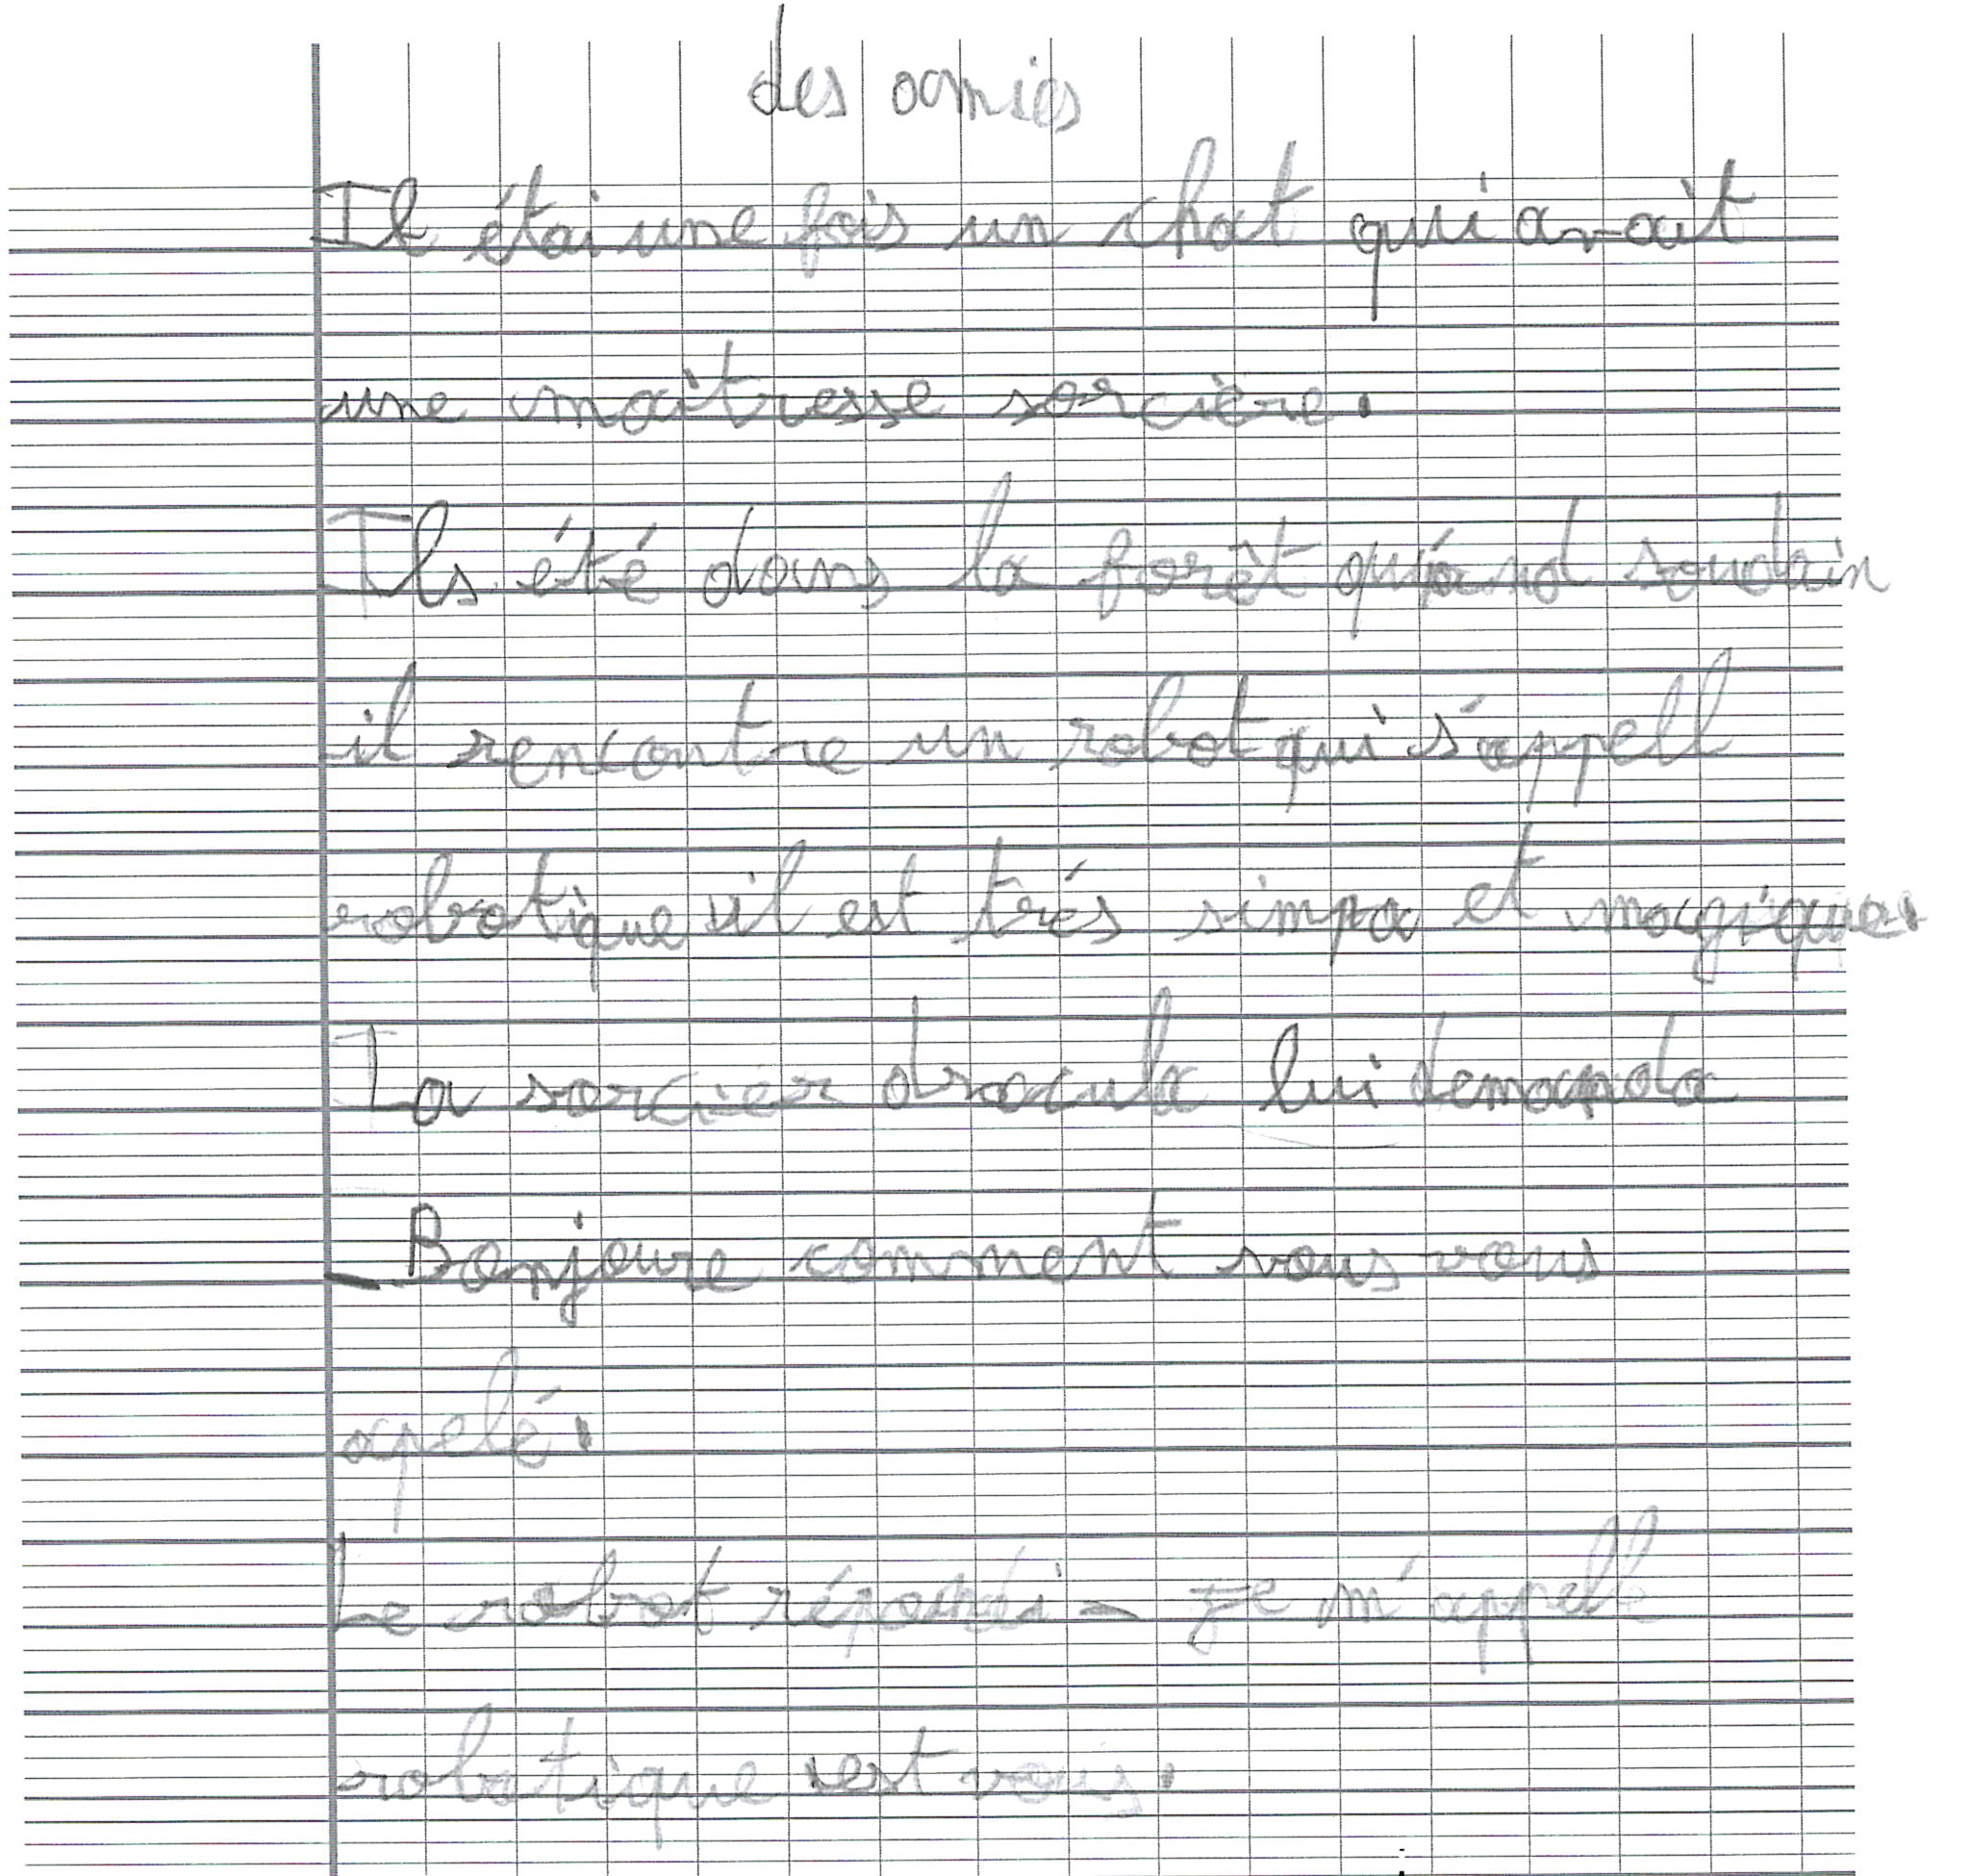 des amies
Il étai une fois un chat qui avait
une maîtresse sorcière.
Ils été dans la forêt quand soudain
il rencontre un robot qui s'appell
robotique il est trés simpa et magique.
La sorcier dracula lui demanda
_ Bonjoure comment vous vous
apelé.
Le robot répondi - Je m'appell
robotique est vous.